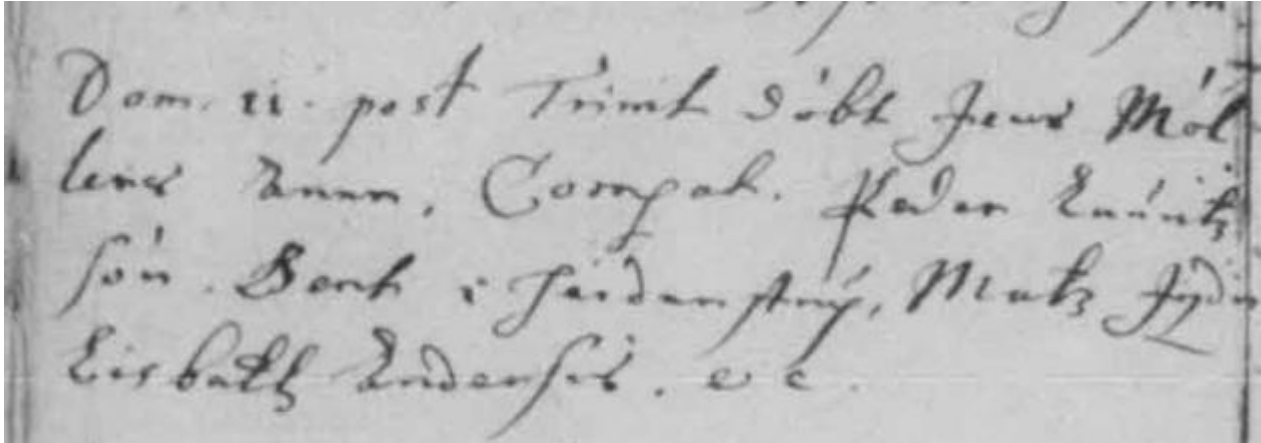 Dom. 11. post Trinit döbt Jens Möl
lers Anne, Compat. Peder Lauritz
søn. Bent i Heidenstrup, Matz Jyde
Lisbeth Anders. e c.